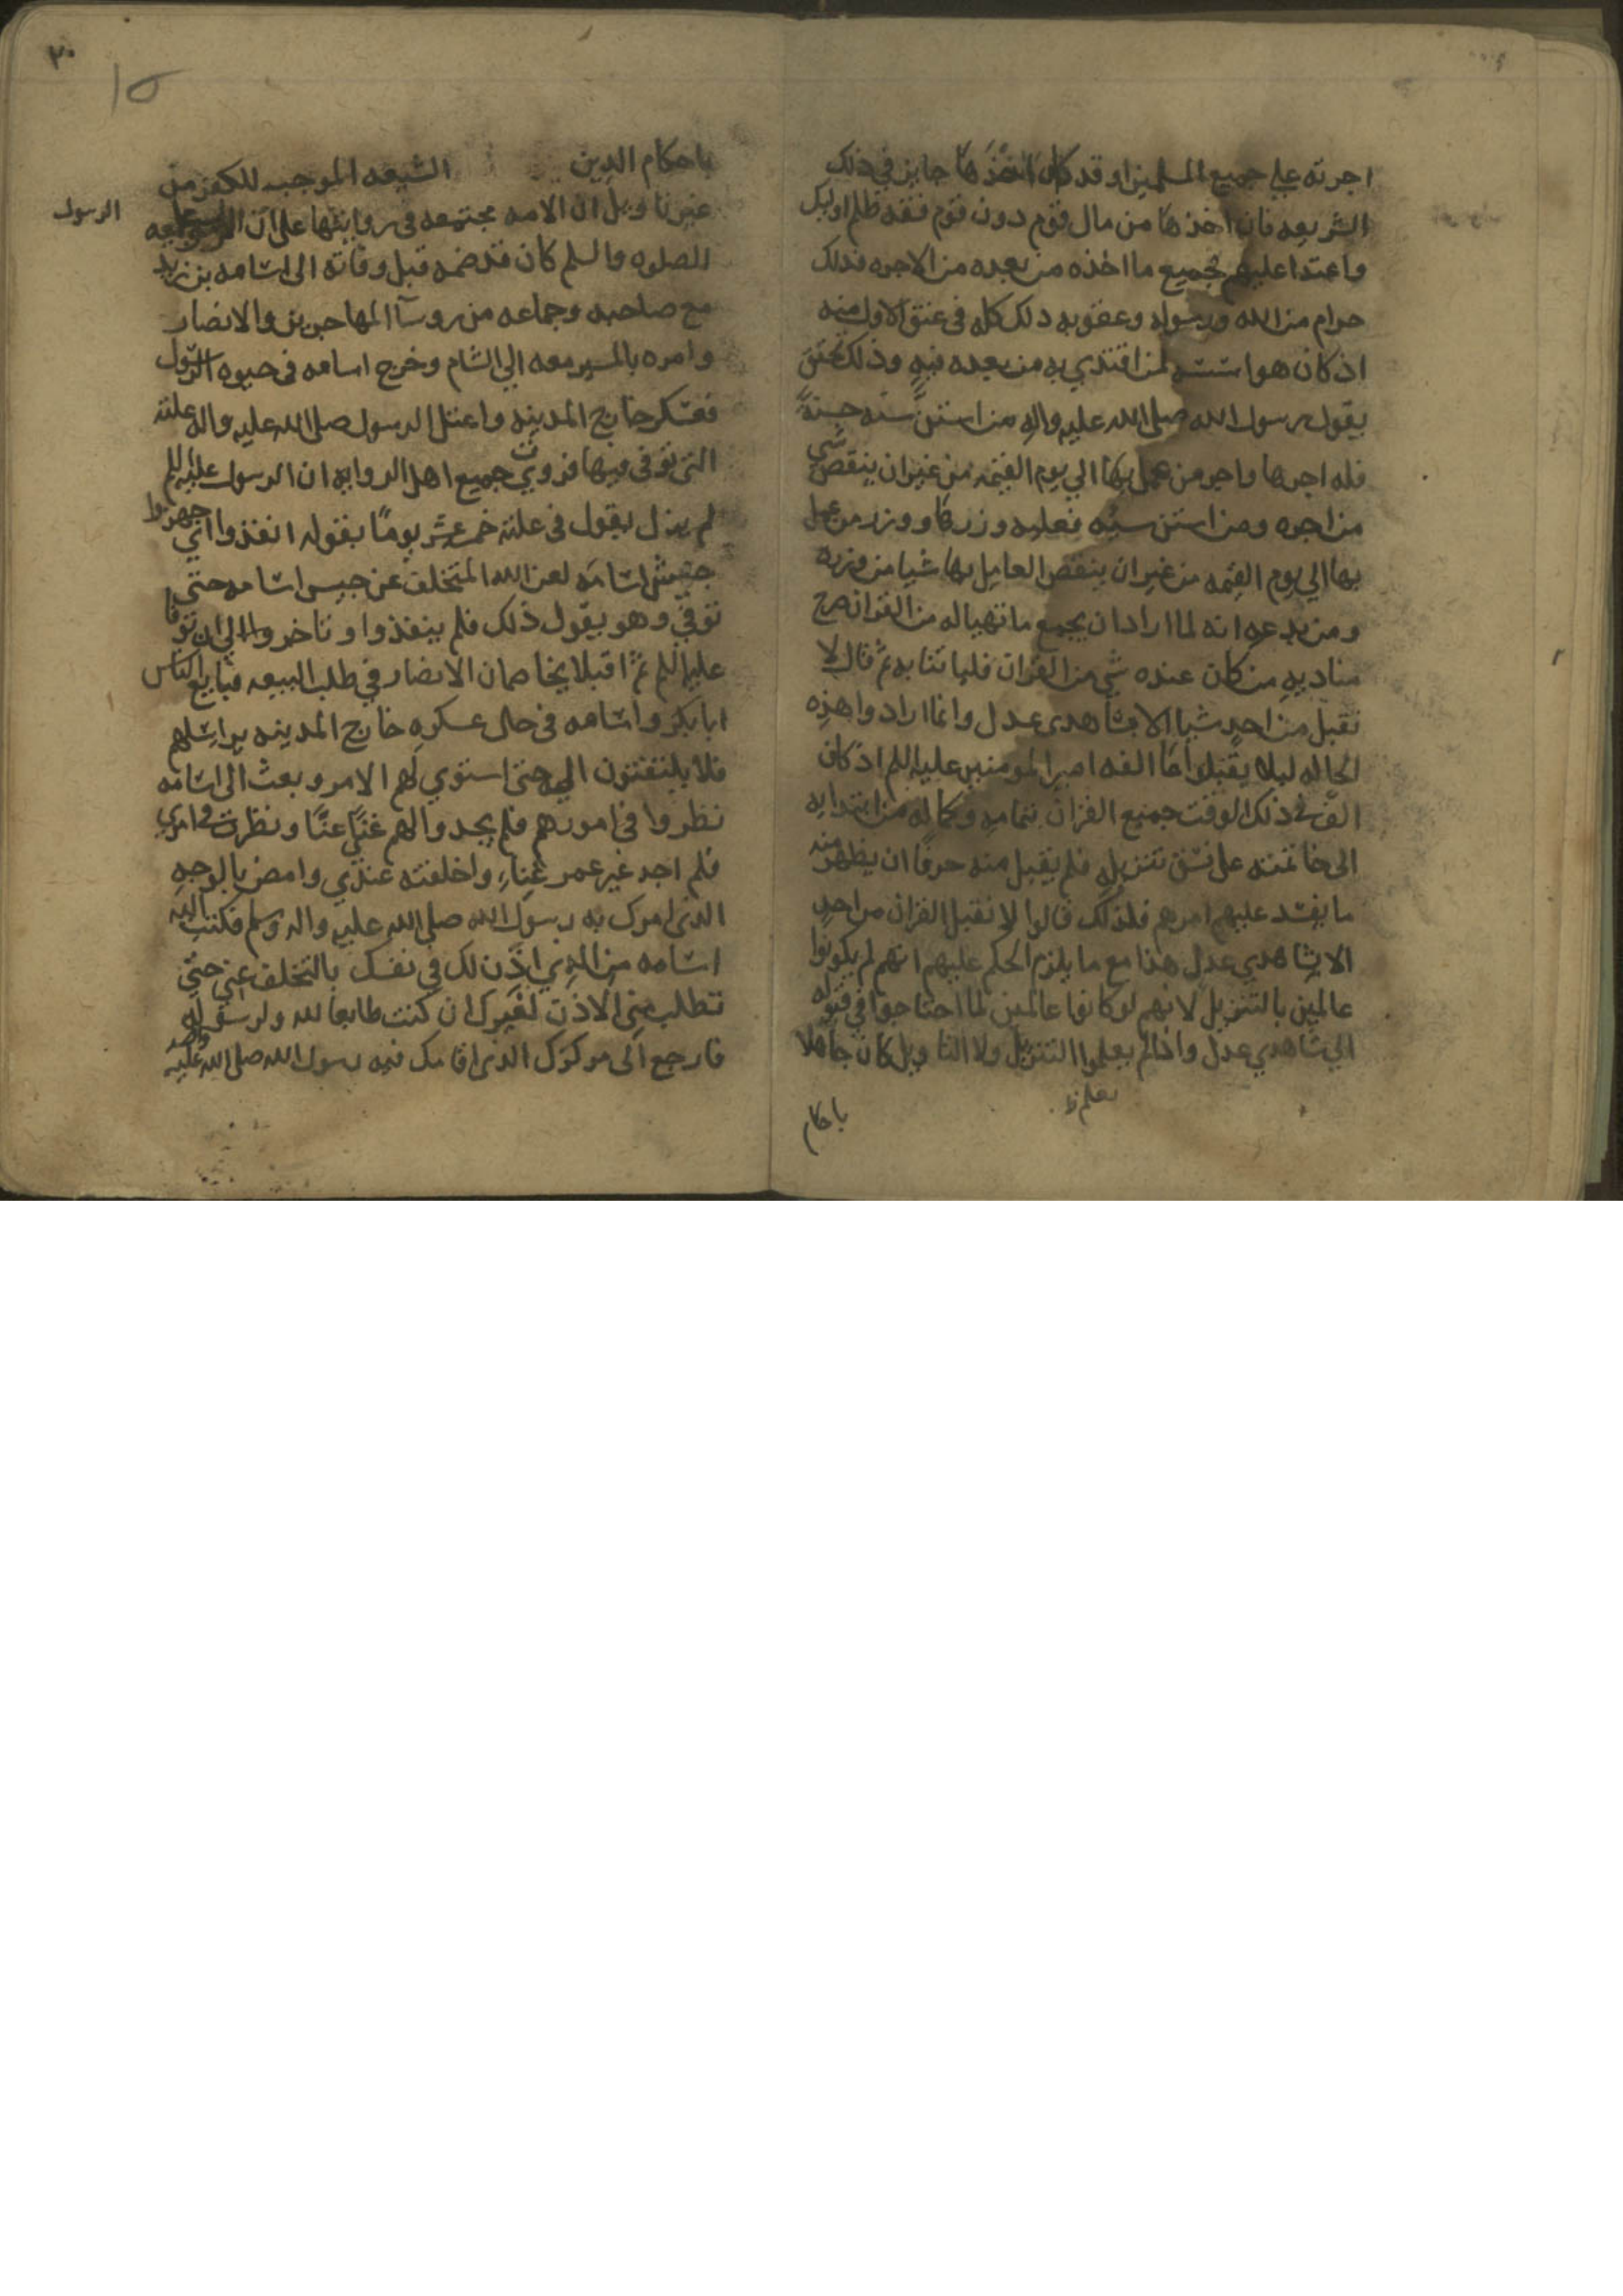 اجرته علي جميع المسلمين او قد كان اخذها جايز في ذلك
الشريعه فان اخذها من مال قوم دون قوم فقد ظلم اوليك
واعتدا عليهم فجميع ما اخذه من بعده من الاجره فذلك
حرام من الله ورسوله وعقوبه ذلك كله في عنق الاول منه
اذ كان هو استنه لمن اقتدي به من بعده فيه وذلك تحقق
بقول رسول الله صلى الله عليه واله من استن سنه حسنةً
فله اجرها واجر من عمل بها الي يوم القيمه من غير ان ينقص شي
من اجره ومن استن سيئه فعليه وزرها ووزر من عمل
بها الي يوم القيمه من غير ان ينقص العامل بها شيا من وزره
ومن بدعه انه لما اراد ان يجمع ما تهيا له من القران صرح
مناديه من كان عنده شي من القران فلياتنا به ثم قال لا
نقبل من احد شيا الا بشاهدي عدل وانما ارادوا هذه
الحاله ليلا يقبلوا ما الفه امير المومنين عليه السلم اذ كان
الف في ذلك الوقت جميع القران بتمامه وكماله من ابتدايه
الى خاتمته على نسق تنزيله فلم يقبل منه حرفا ان يظهر منه
ما يفسد عليهم امرهم فلذلك قالوا لا نقبل القران من احد
الا بشاهدي عدل هذا مع ما يلزم الحكم عليهم انهم لم يكونوا
عالمين بالتنزيل لانهم لو كانوا عالمين لما احتاجوا في قبوله
الي شاهدي عدل واذا لم يعلموا التنزيل ولا التاويل كان جاهلا
يعلم ظ
باحكام
٢٠
15
باحكام الدين الشيعه الموجبه للكفر من
غير تاويل ان الامه مجتمعه في روايتها على ان
الرسول
الصلوه والسلم كان قد ضمه قبل وفاته الى اسامه بن زيد
مع صاحبه وجماعه من روسآ المهاجرين والانصار
وامره بالمسير معه الي الشام وخرج اسامه في حيوه الرسول
فعسكر خارج المدينه واعتل الرسول صلى الله عليه واله علته
التي توفي فيها فروي جميع اهل الروايه ان الرسول عليه السلم
لم يزل يقول في علته خمسه عشر يومًا بقوله انفذوا اي جهزوا
جيش اسامه لعن الله المتخلف عن جيس اسامه حتي
توفي وهو يقول ذلك فلم ينفذوا وتاخروا الي ان توفا
عليه السلم ثم اقبلا يخاصمان الانصار في طلب البيعه فبايع الناس
ابابكر واسامه في حال عسكره خارج المدينه يراسلهم
فلا يلتفتون اليه حتى استوي لهم الامر وبعث الى اسامه
نظروا في امورهم فلم يجدوا لهم غني عنّا ونظرت في امري
فلم اجد غير عمر غناء واخلفته عندي وامض بالوجه
الذي امرك به رسول الله صلى الله عليه واله وسلم فكتب اليه
اسامه من الذي اذن لك في نفسك بالتخلف عني حتي
تطلب مني الاذن لغيرك ان كنت طايعا لله ولرسوله
فارجع الى مركزك الذي اقامك فيه رسول الله صلى الله عليه واله